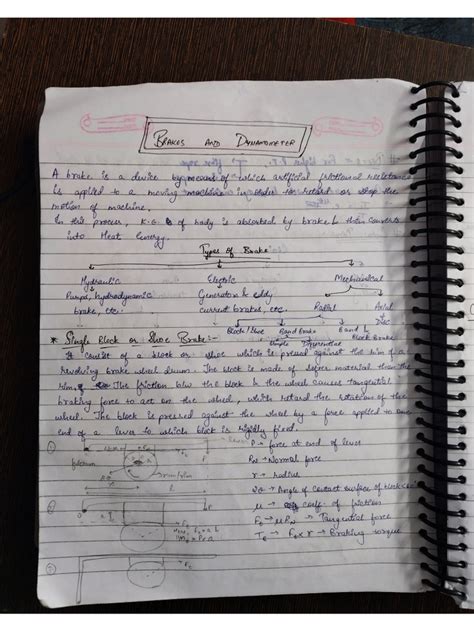 BRAKES AND DYNAMOMETER
A brake is a device by means of which artificial frictional resistance
is applied to a moving machine in order to retard or stop the
motion of machine.
In this process, K.E. of body is absorbed by brake & then converts
into Heat Energy.
Types of Brake
Hydraulic Electric Mechanical
Pumps, hydrodynamic Generators & eddy Radial Axial
brake, etc. current brakes, etc. Disc
Block/Shoe Band Brake Band & Block Brake
Simple Differential
* Single Block or Shoe Brake:-
It consist of a block or shoe which is pressed against the rim of a
revolving brake wheel drum. The block is made of softer material than the
rim. The friction b/w the block & the wheel causes tangential
braking force to act on the wheel, which retard the rotation of the
wheel. The block is pressed against the wheel by a force applied to one
end of a lever to which block is rigidly fixed.
① P → force at end of lever
fulcrum RN → Normal force
r → radius
2θ → Angle of contact surface of block
② μ → coeff. of friction
Ft → μRN → Tangential force
TB → Ft x r → Braking torque